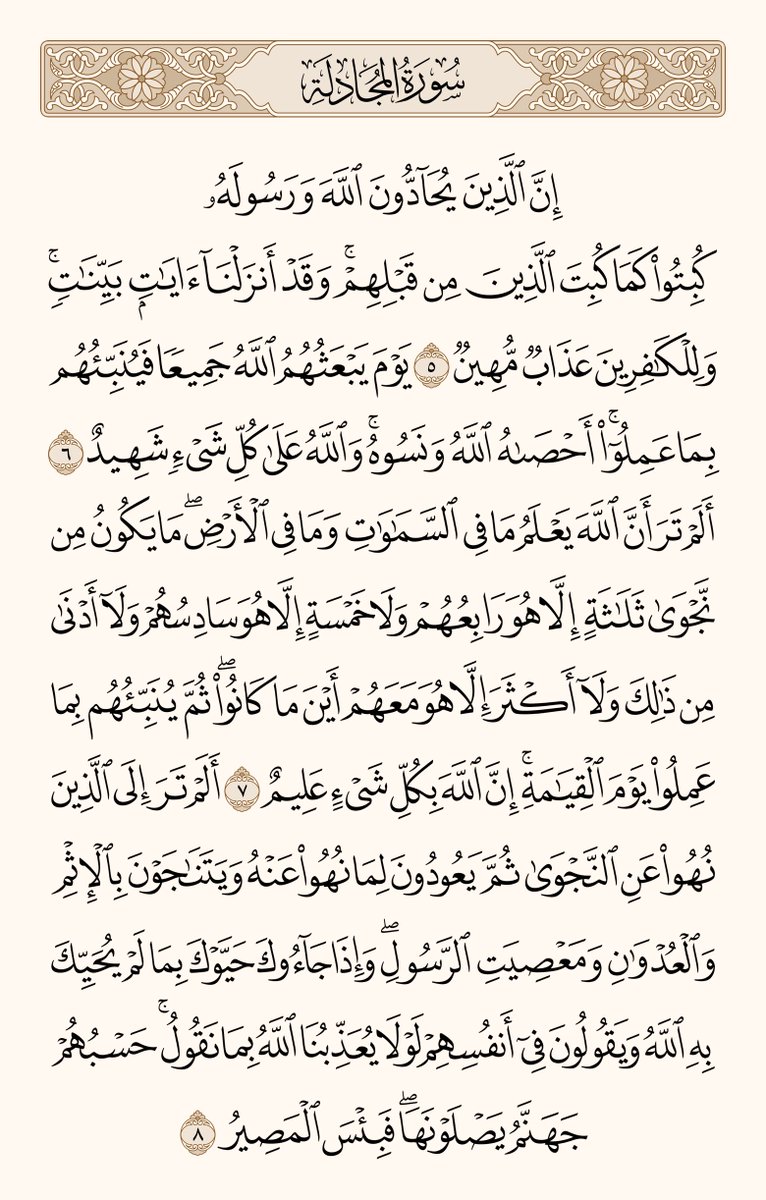 سُورَةُ المُجَادلَةِ
إِنَّ ٱلَّذِينَ يُحَآدُّونَ ٱللَّهَ وَرَسُولَهُۥ
كُبِتُوا۟ كَمَا كُبِتَ ٱلَّذِينَ مِن قَبْلِهِمْ ۚ وَقَدْ أَنزَلْنَآ ءَايَـٰتٍۭ بَيِّنَـٰتٍ ۚ
وَلِلْكَـٰفِرِينَ عَذَابٌ مُّهِينٌ ٥ يَوْمَ يَبْعَثُهُمُ ٱللَّهُ جَمِيعًا فَيُنَبِّئُهُم
بِمَا عَمِلُوٓا۟ ۚ أَحْصَىٰهُ ٱللَّهُ وَنَسُوهُ ۚ وَٱللَّهُ عَلَىٰ كُلِّ شَىْءٍ شَهِيدٌ ٦
أَلَمْ تَرَ أَنَّ ٱللَّهَ يَعْلَمُ مَا فِى ٱلسَّمَـٰوَٰتِ وَمَا فِى ٱلْأَرْضِ ۖ مَا يَكُونُ مِن
نَّجْوَىٰ ثَلَـٰثَةٍ إِلَّا هُوَ رَابِعُهُمْ وَلَا خَمْسَةٍ إِلَّا هُوَ سَادِسُهُمْ وَلَآ أَدْنَىٰ
مِن ذَٰلِكَ وَلَآ أَكْثَرَ إِلَّا هُوَ مَعَهُمْ أَيْنَ مَا كَانُوا۟ ۖ ثُمَّ يُنَبِّئُهُم بِمَا
عَمِلُوا۟ يَوْمَ ٱلْقِيَـٰمَةِ ۚ إِنَّ ٱللَّهَ بِكُلِّ شَىْءٍ عَلِيمٌ ٧ أَلَمْ تَرَ إِلَى ٱلَّذِينَ
نُهُوا۟ عَنِ ٱلنَّجْوَىٰ ثُمَّ يَعُودُونَ لِمَا نُهُوا۟ عَنْهُ وَيَتَنَـٰجَوْنَ بِٱلْإِثْمِ
وَٱلْعُدْوَٰنِ وَمَعْصِيَتِ ٱلرَّسُولِ ۖ وَإِذَا جَآءُوكَ حَيَّوْكَ بِمَا لَمْ يُحَيِّكَ
بِهِ ٱللَّهُ وَيَقُولُونَ فِىٓ أَنفُسِهِمْ لَوْلَا يُعَذِّبُنَا ٱللَّهُ بِمَا نَقُولُ ۚ حَسْبُهُمْ
جَهَنَّمُ يَصْلَوْنَهَا ۖ فَبِئْسَ ٱلْمَصِيرُ ٨